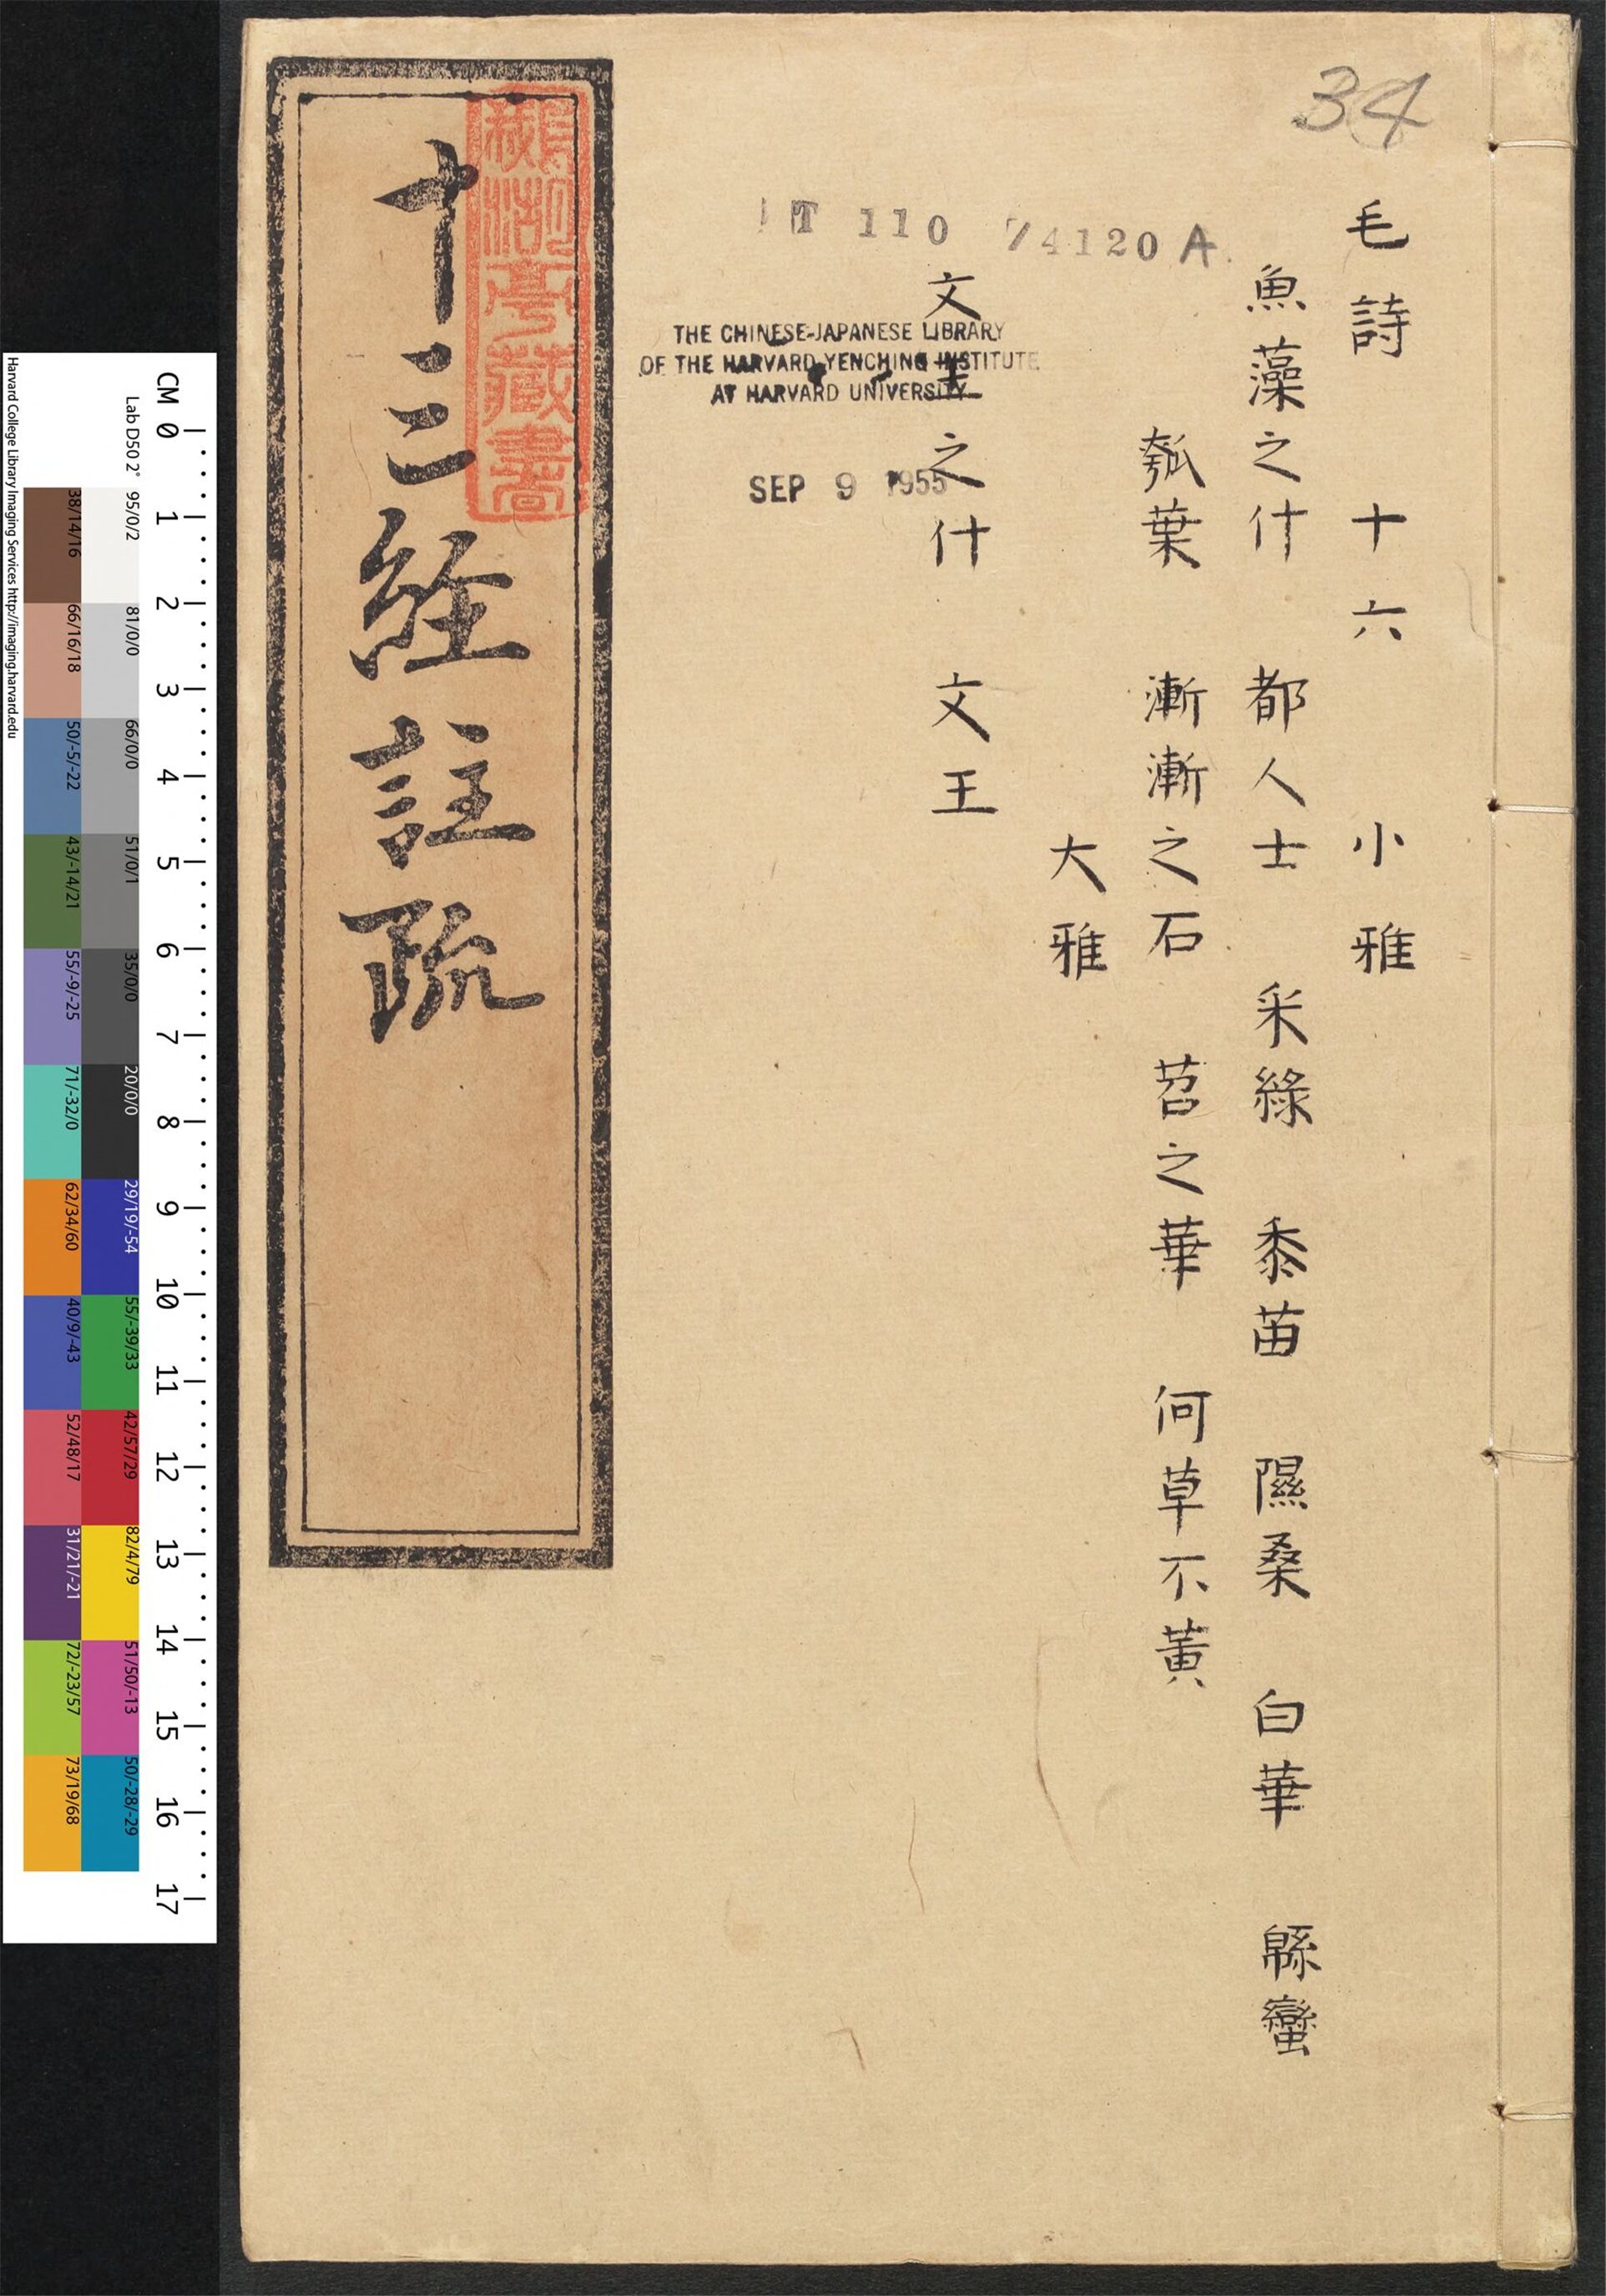 34
毛詩 十六 小雅
魚藻之什 都人士 采綠 黍苗 隰桑 白華 緜蠻
瓠葉 漸漸之石 苕之華 何草不黃
大雅
文王之什 文王
T 110 74120 A
THE CHINESE-JAPANESE LIBRARY
OF THE HARVARD-YENCHING INSTITUTE
AT HARVARD UNIVERSITY
SEP 9 1955
十三経註疏
亭藏書
CM 0 1 2 3 4 5 6 7 8 9 10 11 12 13 14 15 16 17
Lab D50 2° 95/0/2 81/0/0 66/0/0 51/0/1 35/0/0 20/0/0 29/19/-54 55/-39/33 42/57/29 82/4/79 51/50/-13 50/-28/-29
38/14/16 66/16/18 50/-5/-22 43/-14/21 55/-9/-25 71/-32/0 62/34/60 40/9/-43 52/48/17 31/21/-21 72/-23/57 73/19/68
Harvard College Library Imaging Services http://imaging.harvard.edu